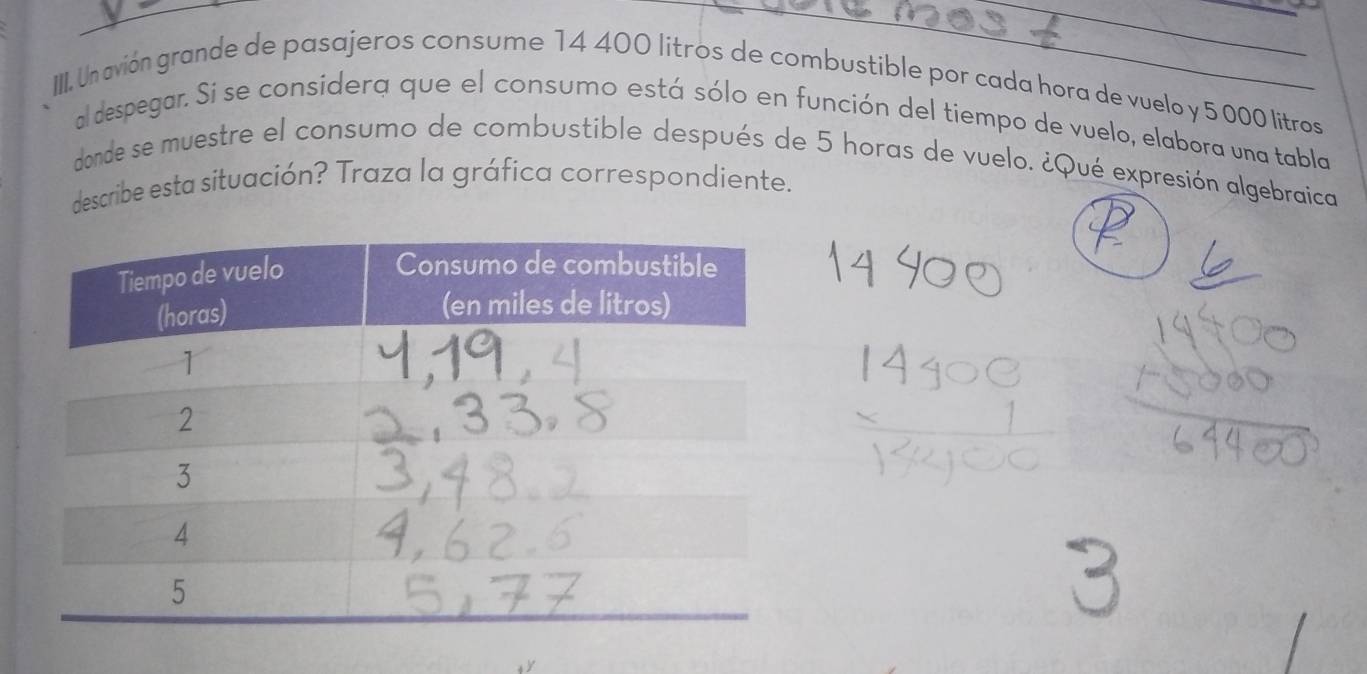 mos t
III. Un avión grande de pasajeros consume 14 400 litros de combustible por cada hora de vuelo y 5 000 litros
al despegar. Si se considera que el consumo está sólo en función del tiempo de vuelo, elabora una tabla
donde se muestre el consumo de combustible después de 5 horas de vuelo. ¿Qué expresión algebraica
describe esta situación? Traza la gráfica correspondiente.
Tiempo de vuelo
(horas)
Consumo de combustible
(en miles de litros)
1 1,19.4
2 2,33.8
3 3,48.2
4 4,62.6
5 5,77
14 400
14400
x 1
14400
R.
6
14400
+5000
64400
3
y